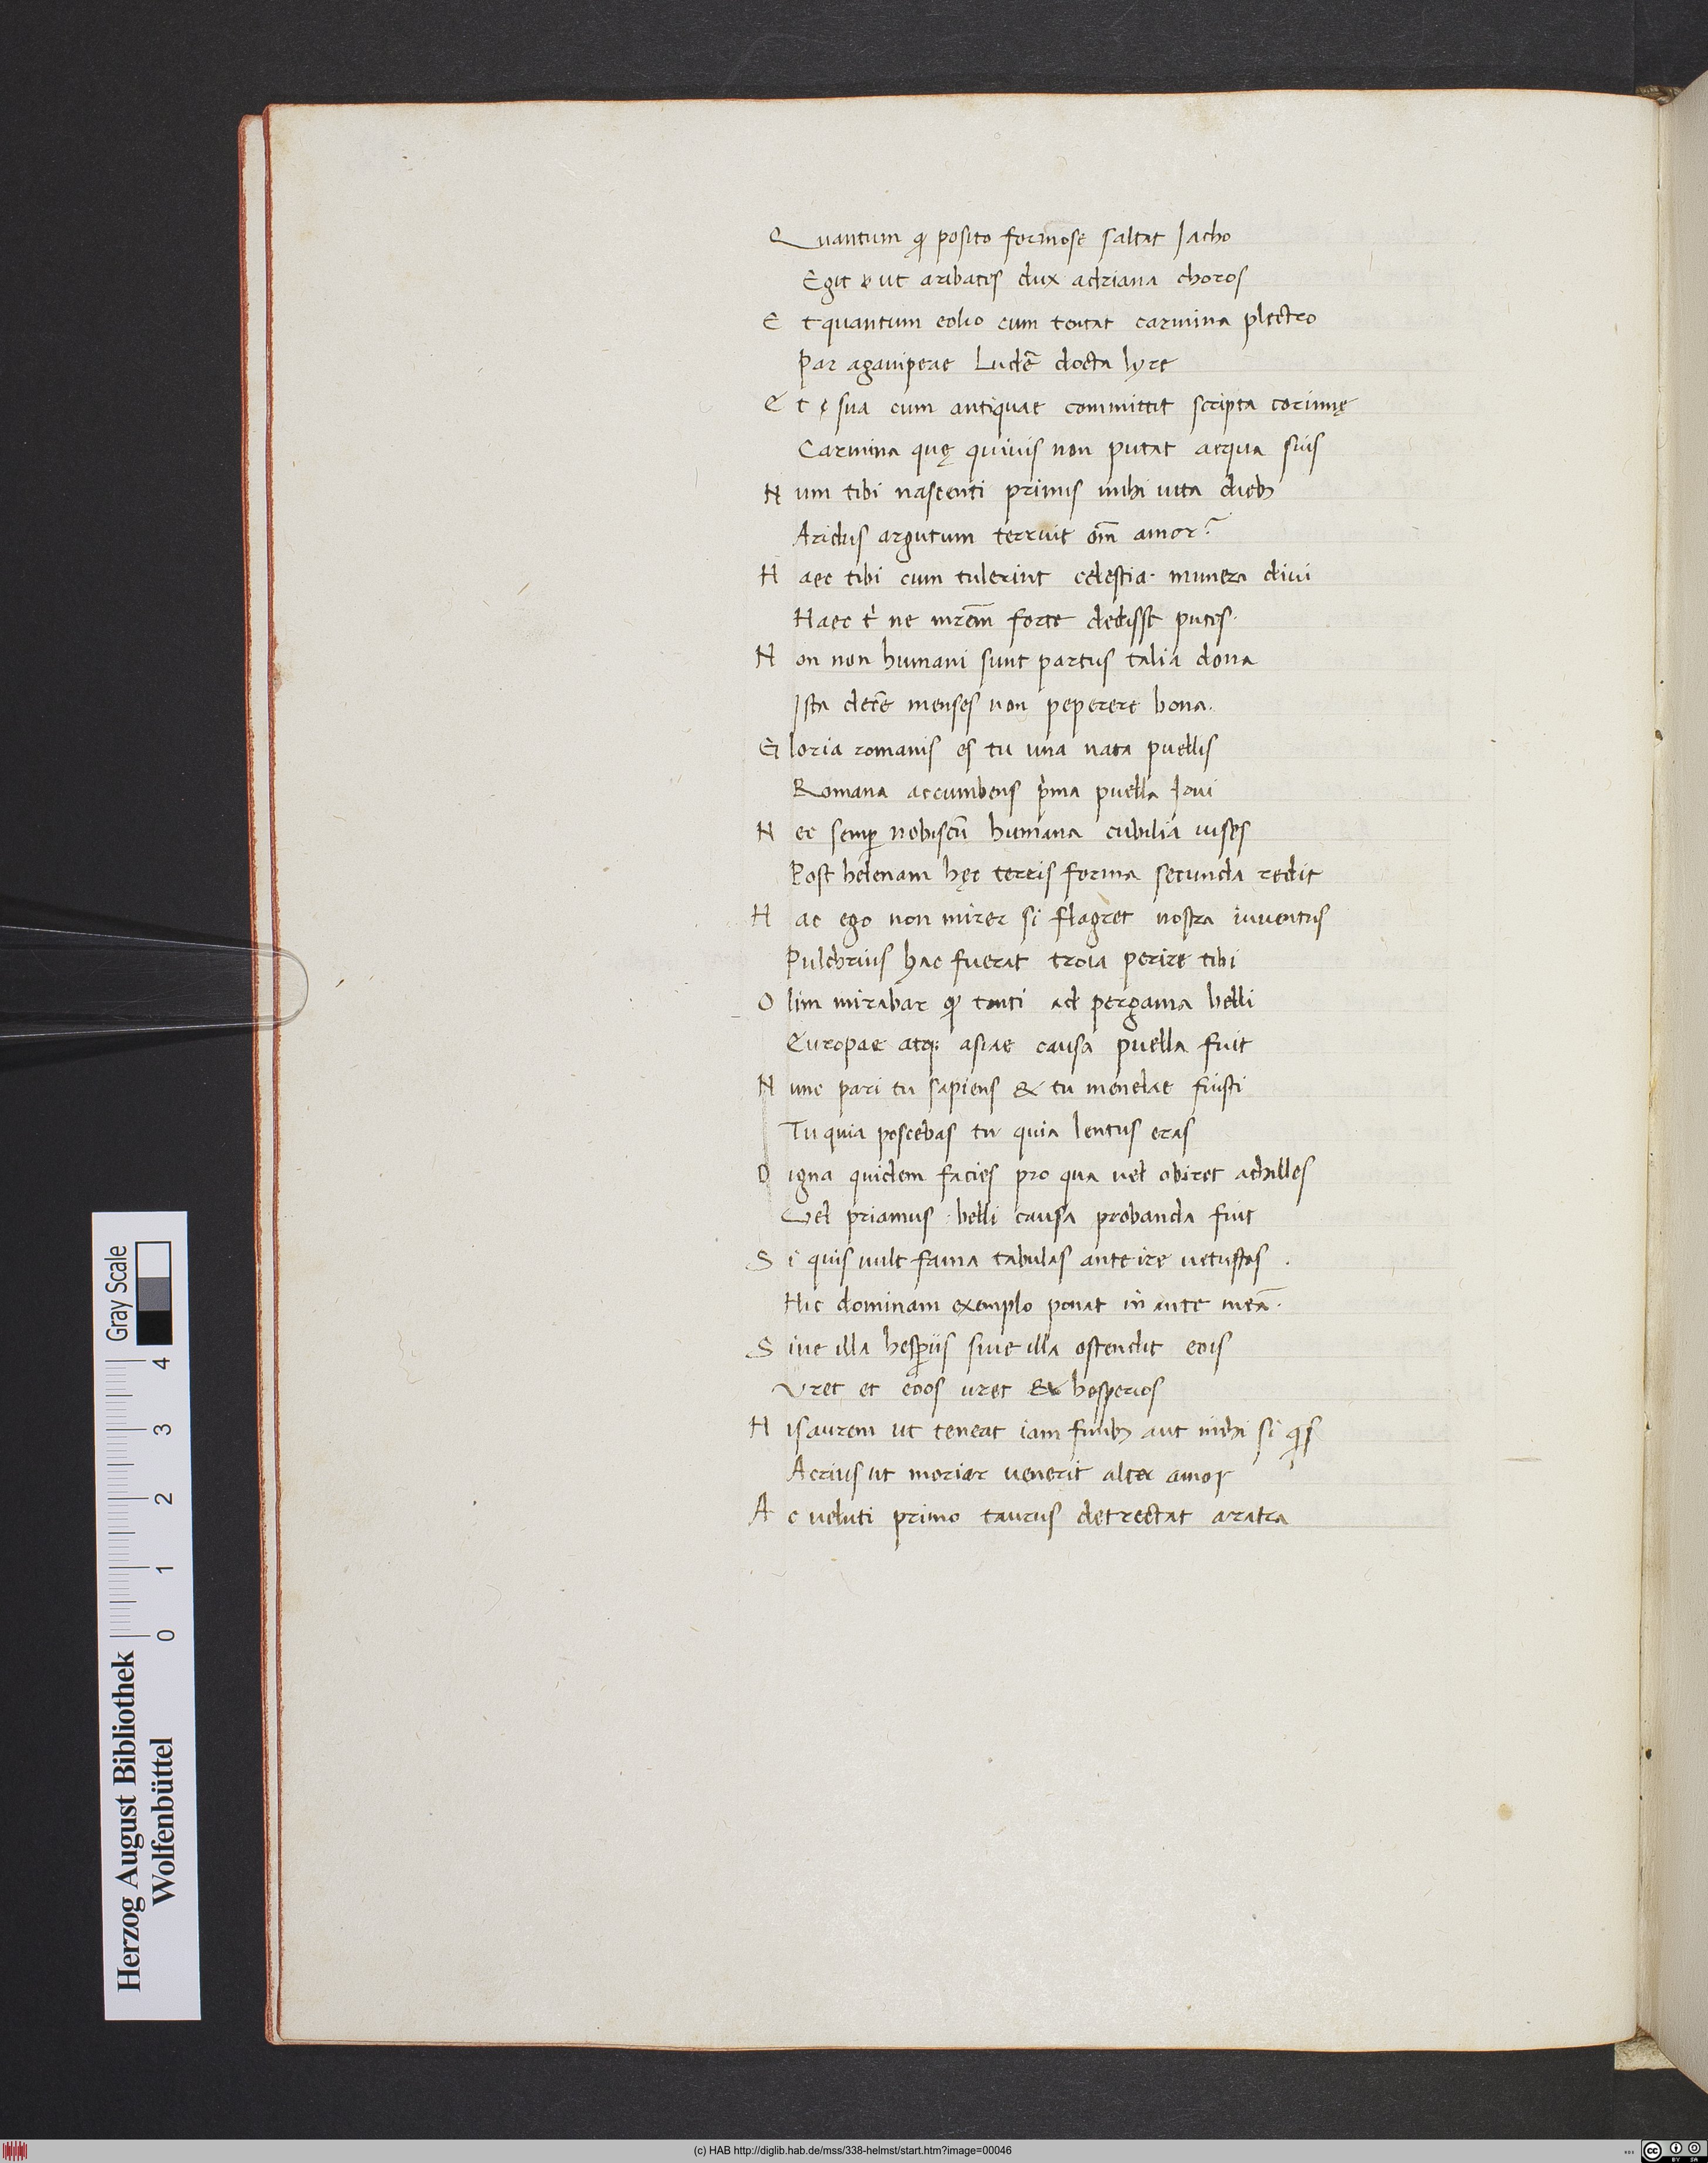 Quantum ꝙ posito formose saltat Jacho
Egit ut aribates dux adriana choros
E t quantum eolio cum tentat carmina plectro
Par aganipeae Ludẽ docta lyre
E t sua cum antiquae committit scripta corinnę
Carmina quę quiuis non putat aequa suis
N um tibi nascenti primis mihi uita dieb;
Aridus argutum terruit om̅ amor?
H aec tibi cum tulerint celestia munera diui
Haec t' ne mr̅em forte dedisse putes.
N on non humani sunt partus talia dona
Ista decẽ menses non peperere bona.
G loria romanis es tu una nata puellis
Romana accumbens p'ma puella Joui
N ec semꝑ nobiscũ humana cubilia uises
Post helenam hęc terris forma secunda redit
H ac ego non mirer si flagret nostra iuventus
Pulchrius hac fuerat troia perire tibi
O lim mirabar ꝙ tanti ad pergama belli
Europae atq; asiae causa puella fuit
N unc pari tu sapiens & tu menelae fuisti
Tu quia poscebas tu quia lentus eras
D igna quidem facies pro qua uel obiret achilles
Vel priamus belli causa probanda fuit
S i quis uult fama tabulas ante ire uetustas .
Hic dominam exemplo ponat in ante meã.
S iue illa hesꝑiis siue illa ostendit eois
Vret et eoos uret & hesperios
H is aurem ut teneat iam finib; aut mihi si
Acrius ut moriar uenerit alter amor
A c ueluti primo taurus detrectat aratra
Herzog August Bibliothek
Wolfenbüttel
0 1 2 3 4
Gray Scale
(c) HAB http://diglib.hab.de/mss/338-helmst/start.htm?image=00046
cc BY SA